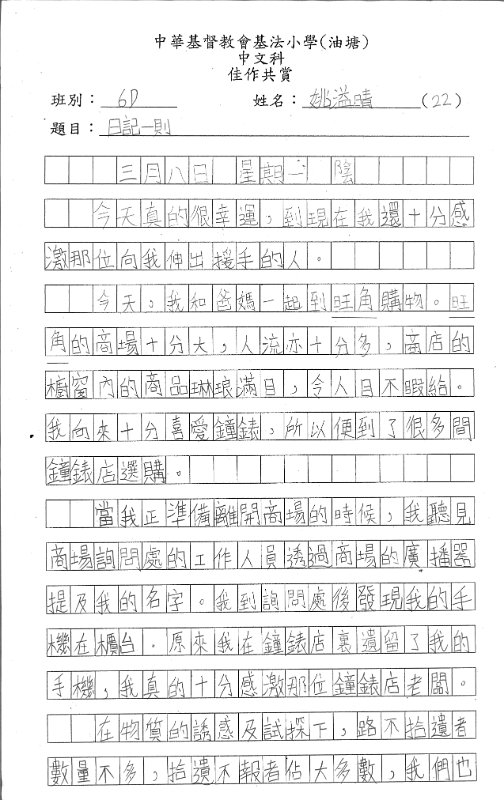 中華基督教會基法小學(油塘)
中文科
佳作共賞
班別：6D 姓名：姚溢晴 (22)
題目：日記一則
三月八日 星期一 陰
今天真的很幸運，到現在我還十分感
激那位向我伸出援手的人。
今天，我和爸媽一起到旺角購物。旺
角的商場十分大，人流亦十分多，商店的
櫥窗內的商品琳琅滿目，令人目不暇給。
我向來十分喜愛鐘錶，所以便到了很多間
鐘錶店選購。
當我正準備離開商場的時候，我聽見
商場詢問處的工作人員透過商場的廣播器
提及我的名字。我到詢問處後發現我的手
機在櫃台。原來我在鐘錶店裏遺留了我的
手機，我真的十分感激那位鐘錶店老闆。
在物質的誘惑及試探下，路不拾遺者
數量不多，拾遺不報者佔大多數，我們也